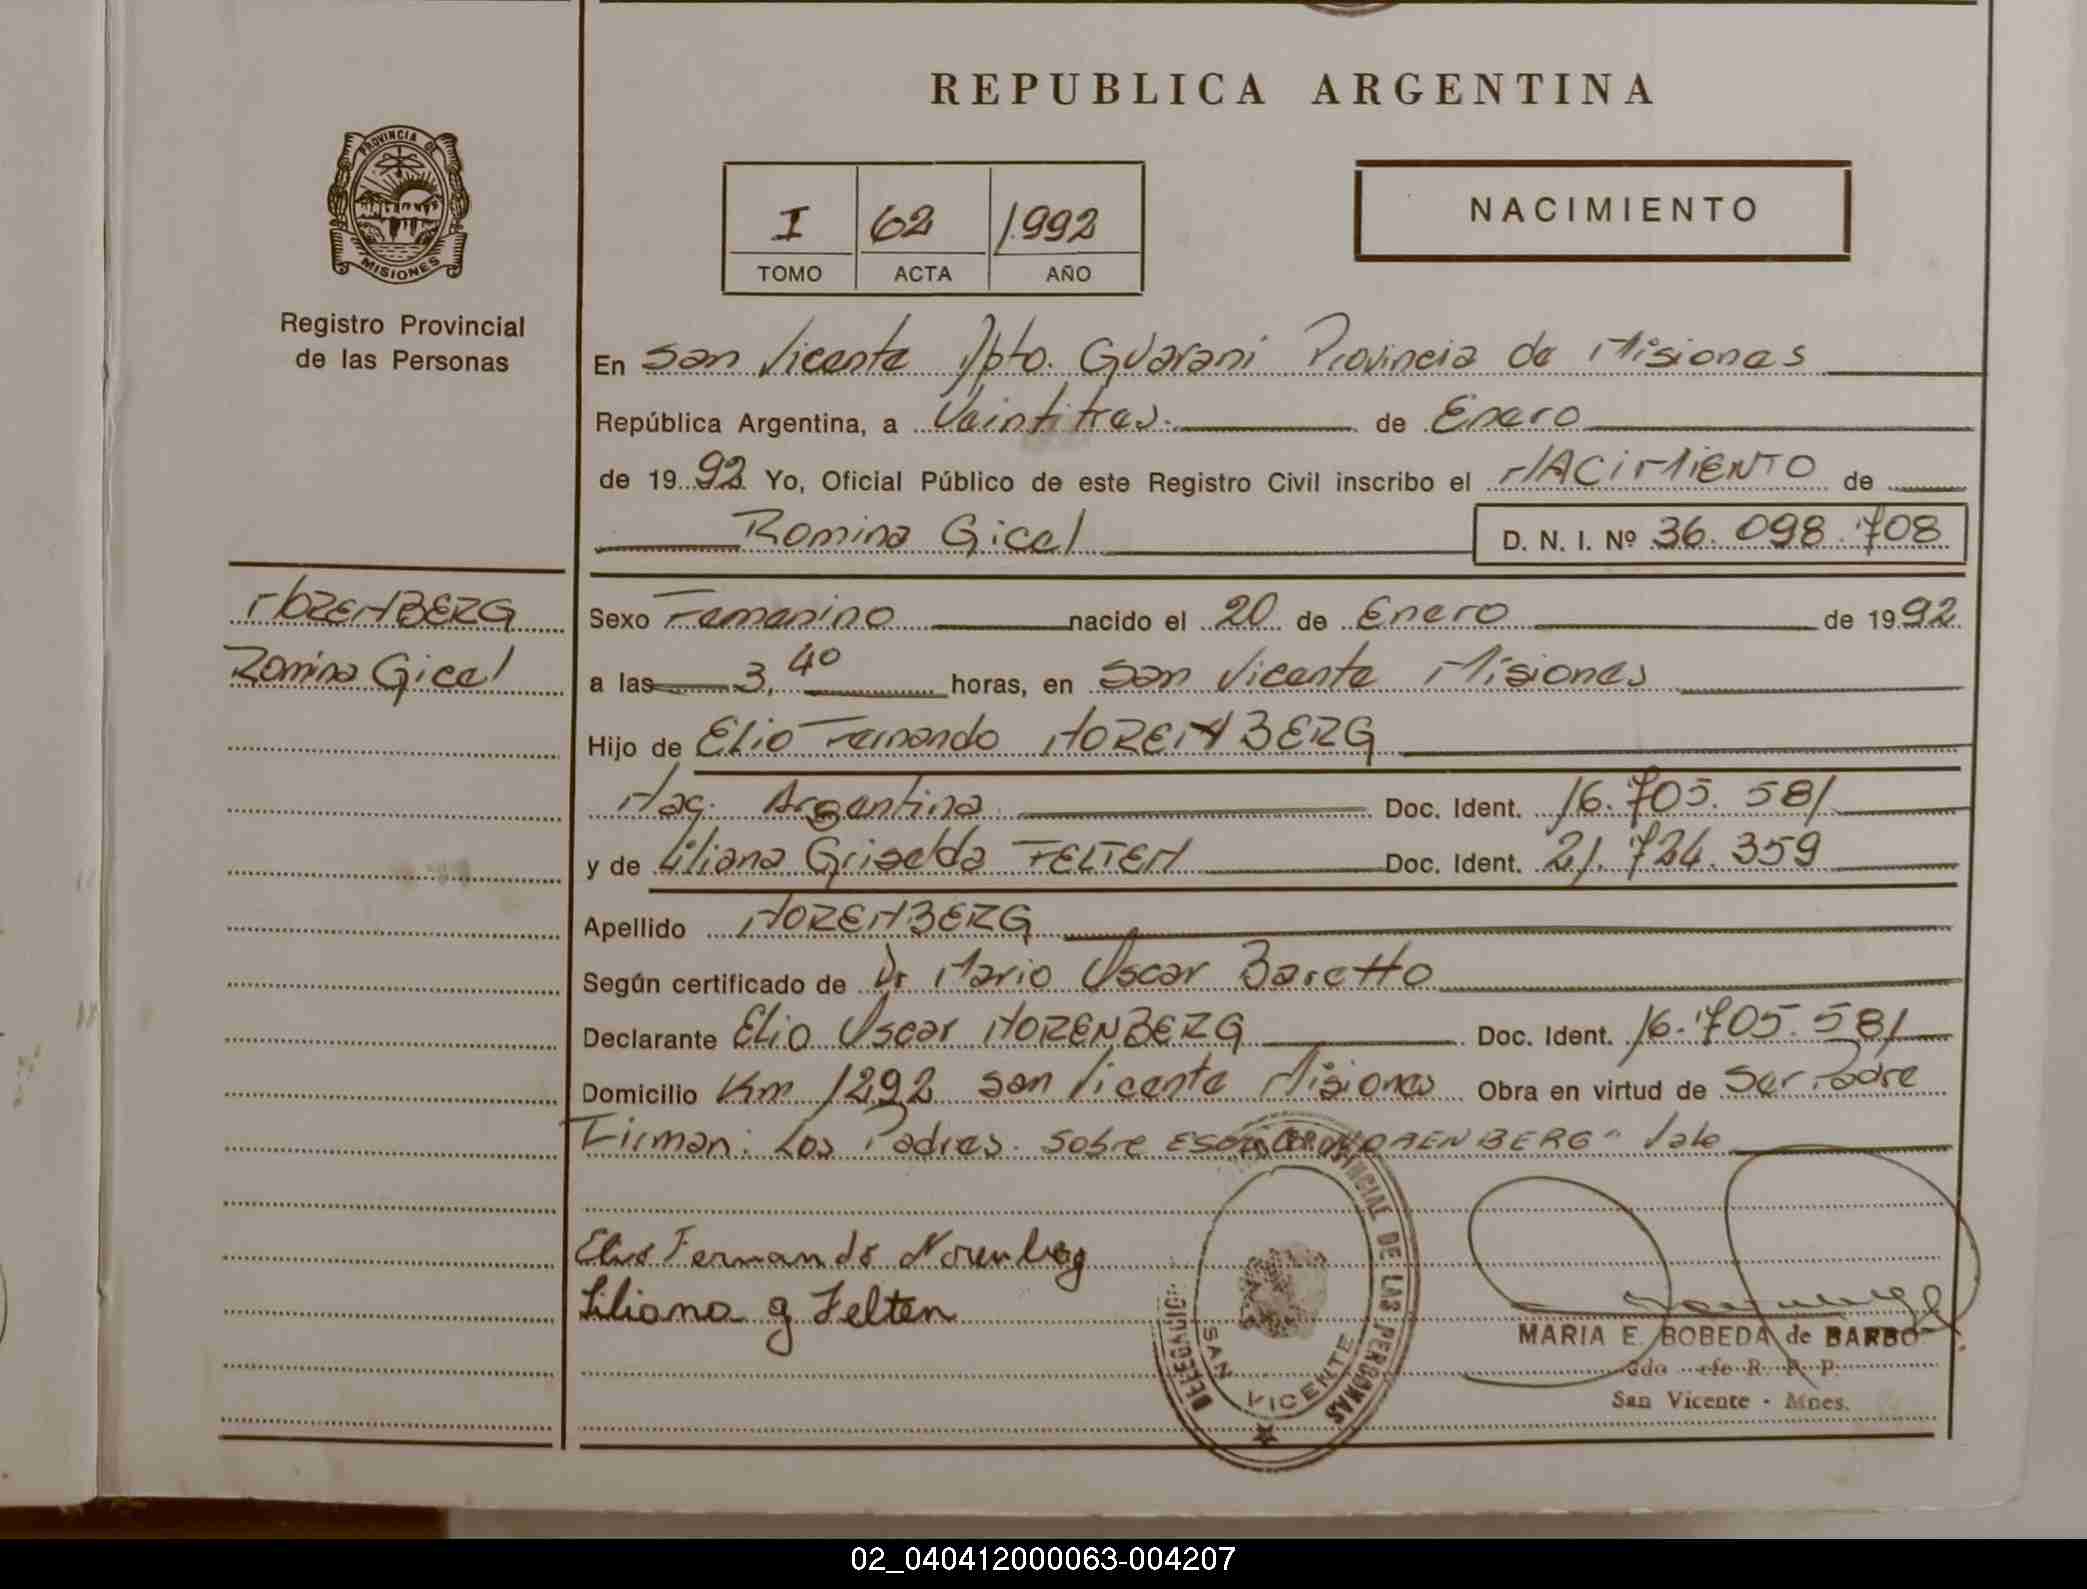 REPUBLICA ARGENTINA
PROVINCIA DE MISIONES
Registro Provincial
de las Personas
I 62 1992
TOMO ACTA AÑO
NACIMIENTO
En San Vicente Dpto. Guarani Provincia de Misiones
República Argentina, a Veintitres. de Enero
de 1992 Yo, Oficial Público de este Registro Civil inscribo el NACIMIENTO de
Romina Gicel D. N. I. Nº 36.098.708
NORENBERG
Romina Gicel
Sexo Femenino nacido el 20 de Enero de 1992
a las 3,40 horas, en San Vicente Misiones
Hijo de Elio Fernando NORENBERG
Nac. Argentina Doc. Ident. 16.705.581
y de Liliana Griselda FELTEN Doc. Ident. 21.724.359
Apellido NORENBERG
Según certificado de Dr Mario Oscar Baretto
Declarante Elio Oscar NORENBERG Doc. Ident. 16.705.581
Domicilio Km 1292 San Vicente Misiones Obra en virtud de Ser Padre
Firman: Los Padres. Sobre NORENBERG" Vale
Elio Fernando Norenberg
Liliana g Felten
DELEGACION PROVINCIAL DE LAS PERSONAS
SAN VICENTE
MARIA E. BOBEDA de BARBO
R. P. P.
San Vicente - Mnes.
02_040412000063-004207